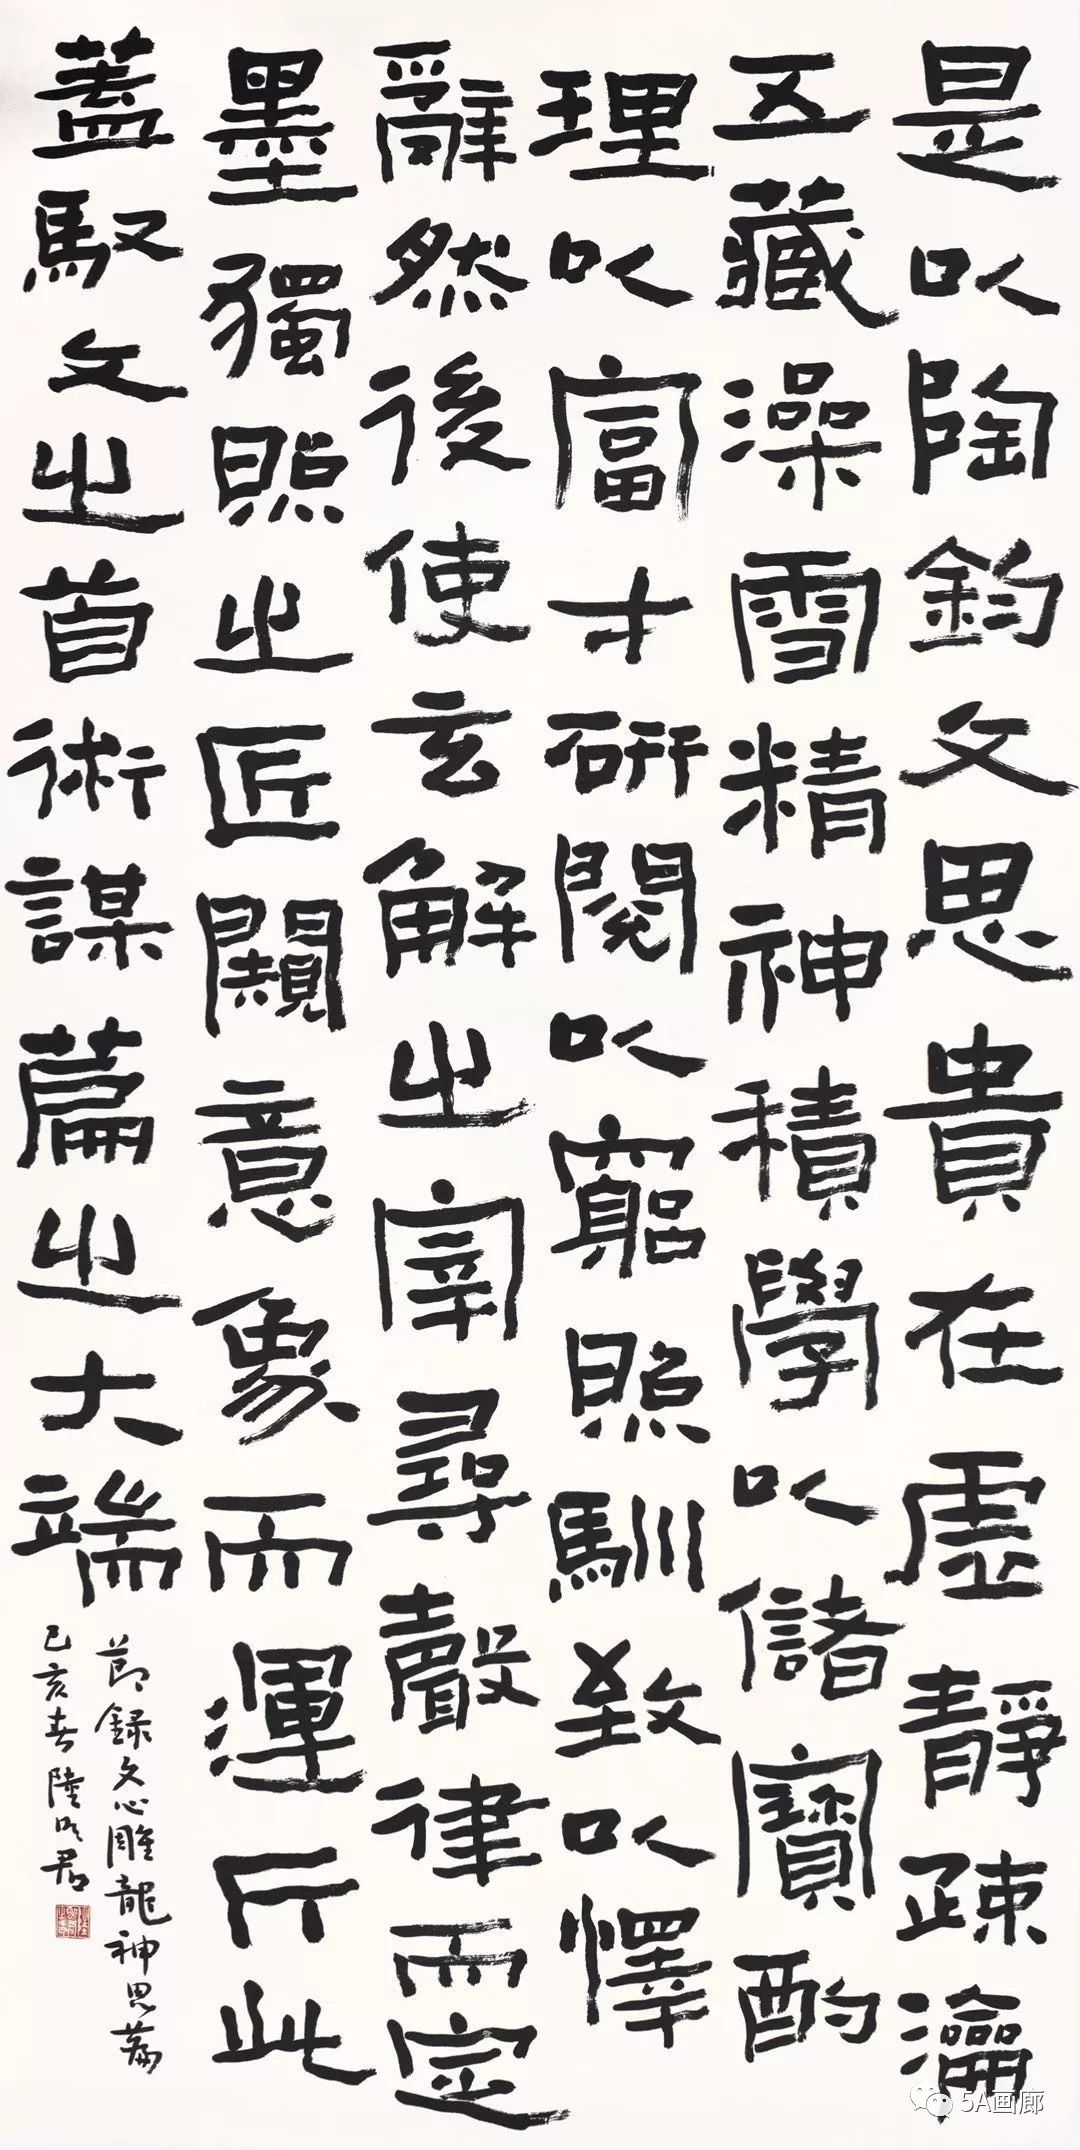 是以陶鈞文思貴在虛靜疏瀹
五藏澡雪精神積學以儲寶酌
理以富才研閱以窮照馴致以懌
辭然後使玄解之宰尋聲律而定
墨獨照之匠闚意象而運斤此
蓋馭文之首術謀篇之大端
節録文心雕龍神思篇
己亥春陸明君
5A画廊